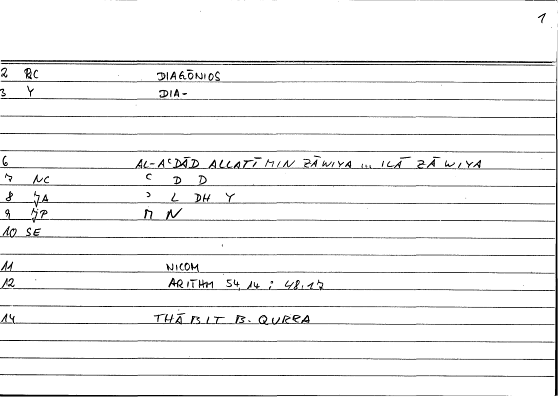 1
2 RC DIAGŌNIOS
3 Y DIA-
6 AL-AʿDĀD ALLATĪ MIN ZĀWIYA ... ILĀ ZĀWIYA
7 NC ʿ D D
8 JA ʾ L DH Y
9 JP M N
10 SE
11 NICOM
12 ARITHM 54,14 ; 48,17
14 THĀBIT B. QURRA